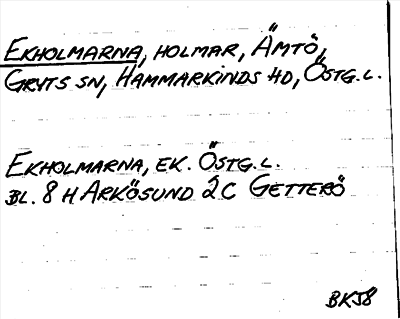 EKHOLMARNA, HOLMAR, ÄMTÖ,
GRYTS SN, HAMMARKINDS HD, ÖSTG.L.
EKHOLMARNA, EK. ÖSTG.L.
BL. 8 H ARKÖSUND 2 C GETTERÖ
BKJ8